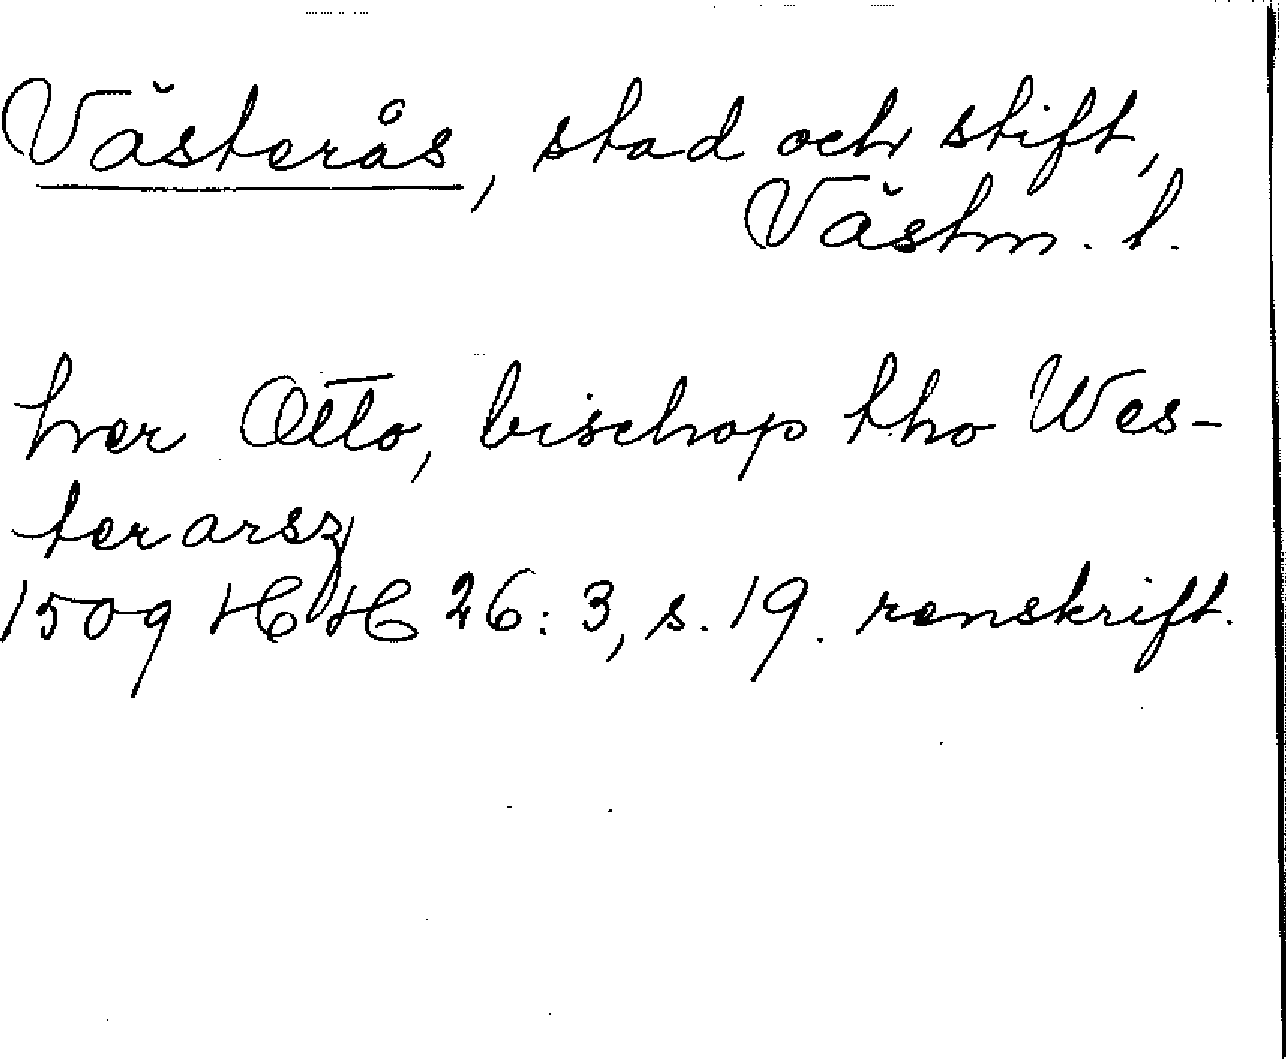 Västerås, stad och stift,
Västm. l.
her Otto, bischop tho Wes-
terarsz
1509 HH 26:3, s. 19. renskrift.